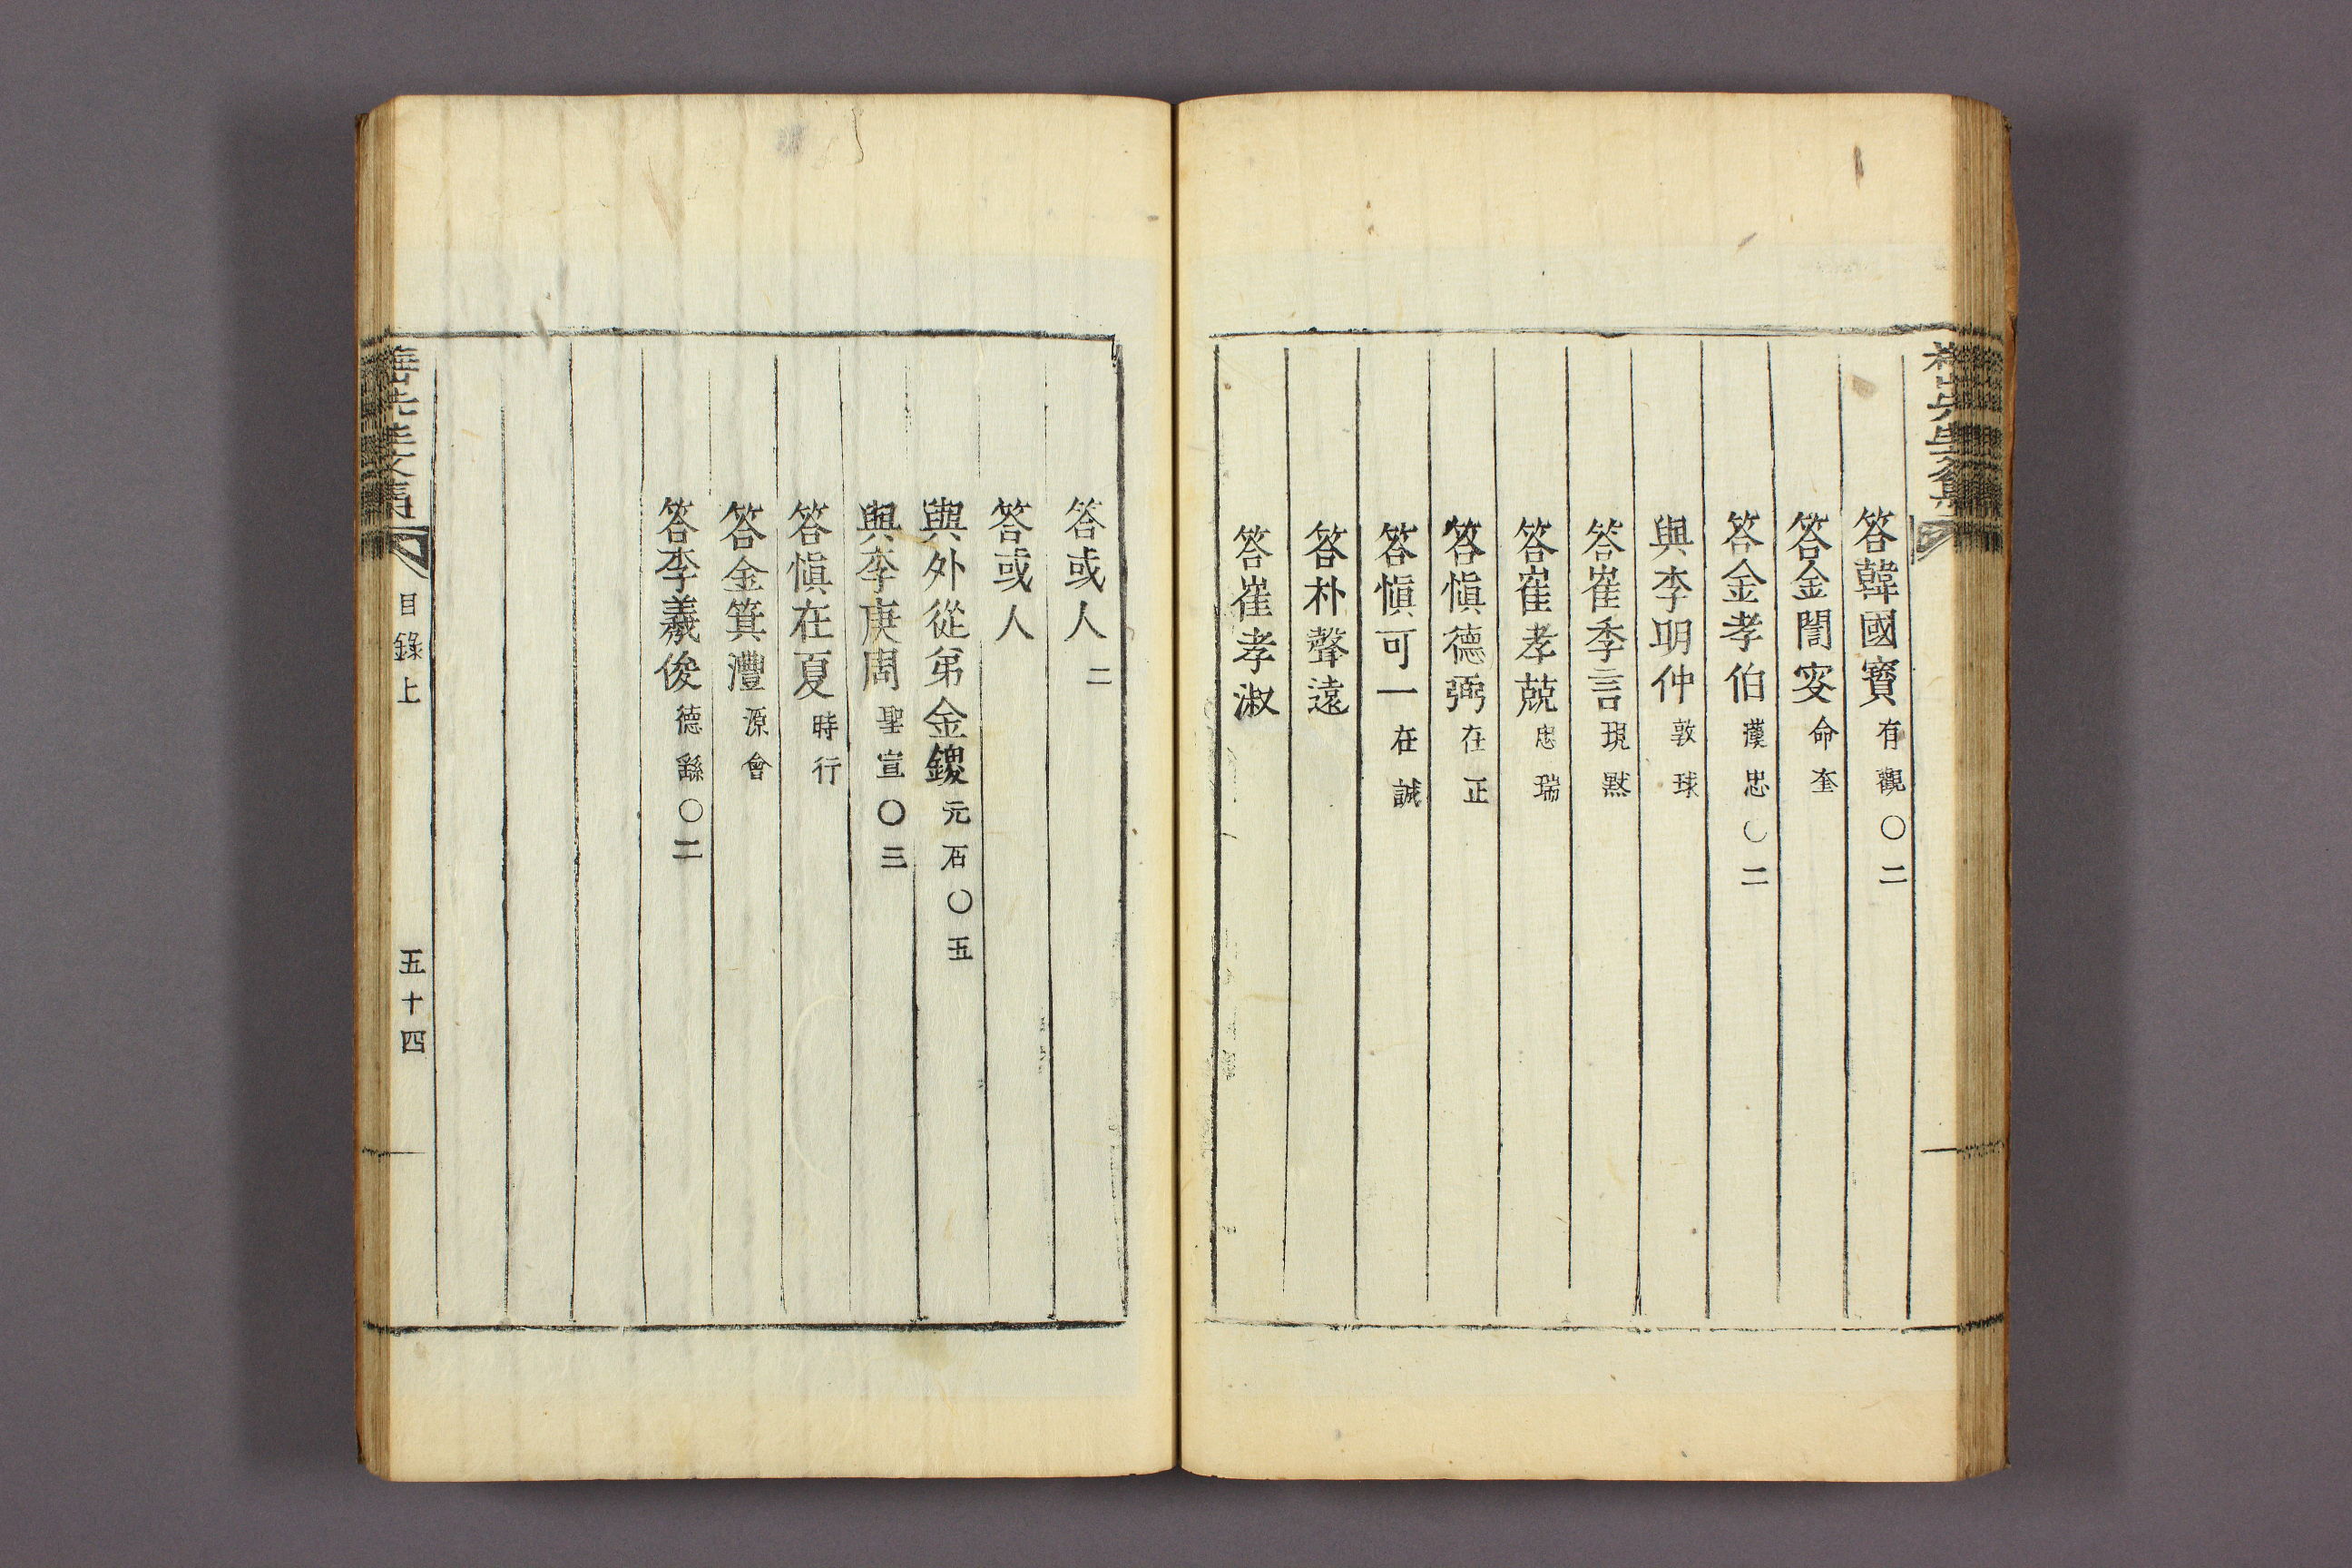 答韓國寶有觀○二
答金誾安命奎
答金孝伯漢忠○二
與李明仲敦球
答崔季言琨黙
答崔孝兢忠瑞
答愼德弼在正
答愼可一在誠
答朴聲遠
答崔孝淑
答或人二
答或人
與外從弟金鍐元石○五
與李庚周聖宣○三
答愼在夏時行
答金箕灃源會
答李羲俊德繇○二
先生文集
目錄上
五十四